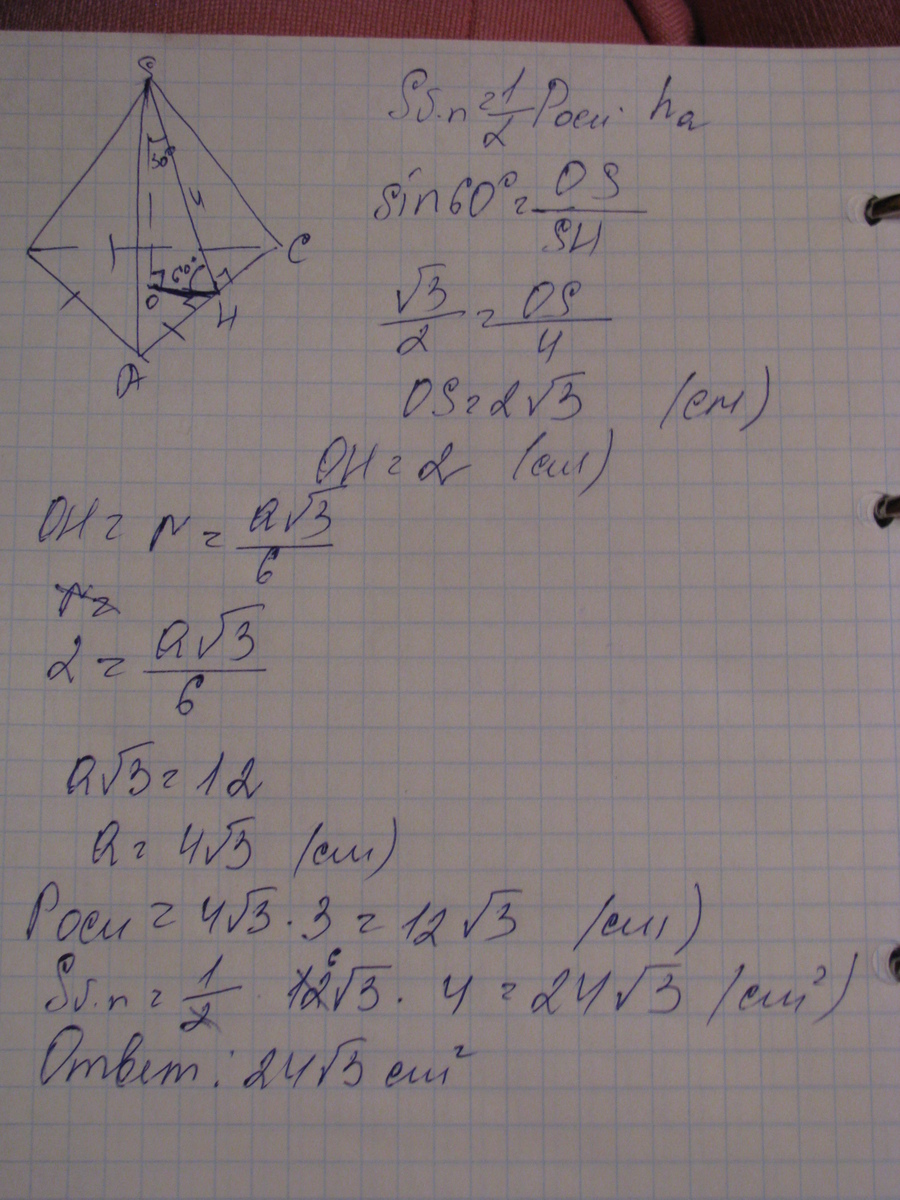 S
30°
4
60°
O
H
C
A
Sб.п = 1/2 Pосн · ha
sin60° = OS/SH
√3/2 = OS/4
OS = 2√3 (см)
OH = 2 (см)
OH = r = a√3/6
r =
2 = a√3/6
a√3 = 12
a = 4√3 (см)
Pосн = 4√3 · 3 = 12√3 (см)
Sб.п = 1/2 12 6 √3 · 4 = 24√3 (см²)
Ответ: 24√3 см²